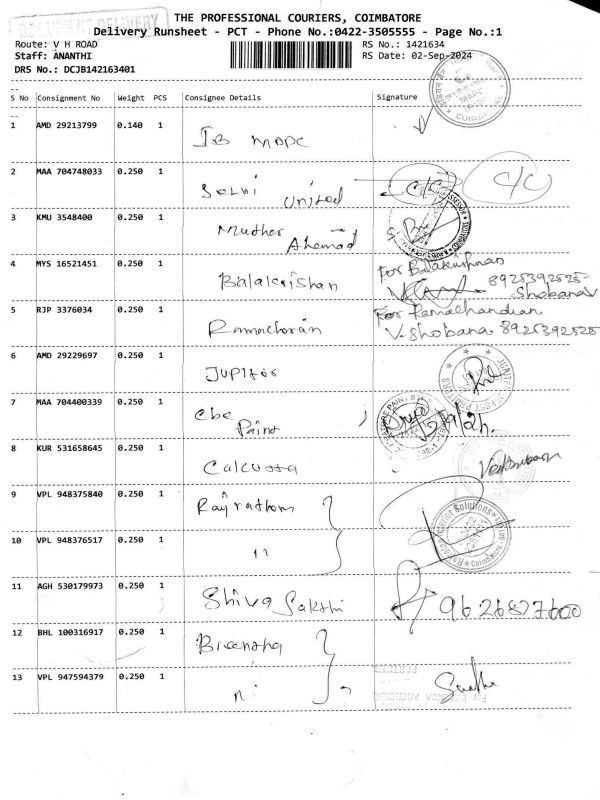 DOCUMENT DELIVERY
THE PROFESSIONAL COURIERS, COIMBATORE
Delivery Runsheet - PCT - Phone No.:0422-3505555 - Page No.:1
Route: V H ROAD
RS No.: 1421634
Staff: ANANTHI
RS Date: 02-Sep-2024
DRS No.: DCJB142163401
--
S No Consignment No Weight PCS Consignee Details Signature
--
1 AMD 29213799 0.140 1 IB MAPC
2 MAA 704748033 0.250 1 Selvi United C/C C/C
3 KMU 3548400 0.250 1 Muther Ahemad
4 MYS 16521451 0.250 1 Balakrishan For Balakrishnan
8925392525
Shobana V
5 RJP 3376034 0.250 1 For Ramachandian
V. Shobana 8925392525
6 AMD 29229697 0.250 1 Jupiter
7 MAA 704400339 0.250 1 Cbe Paint
8 KUR 531658645 0.250 1 Calcutta
9 VPL 948375840 0.250 1
10 VPL 948376517 0.250 1 "
11 AGH 530179973 0.250 1 Shiva Sakthi 9626827600
12 BHL 100316917 0.250 1
13 VPL 947594379 0.250 1